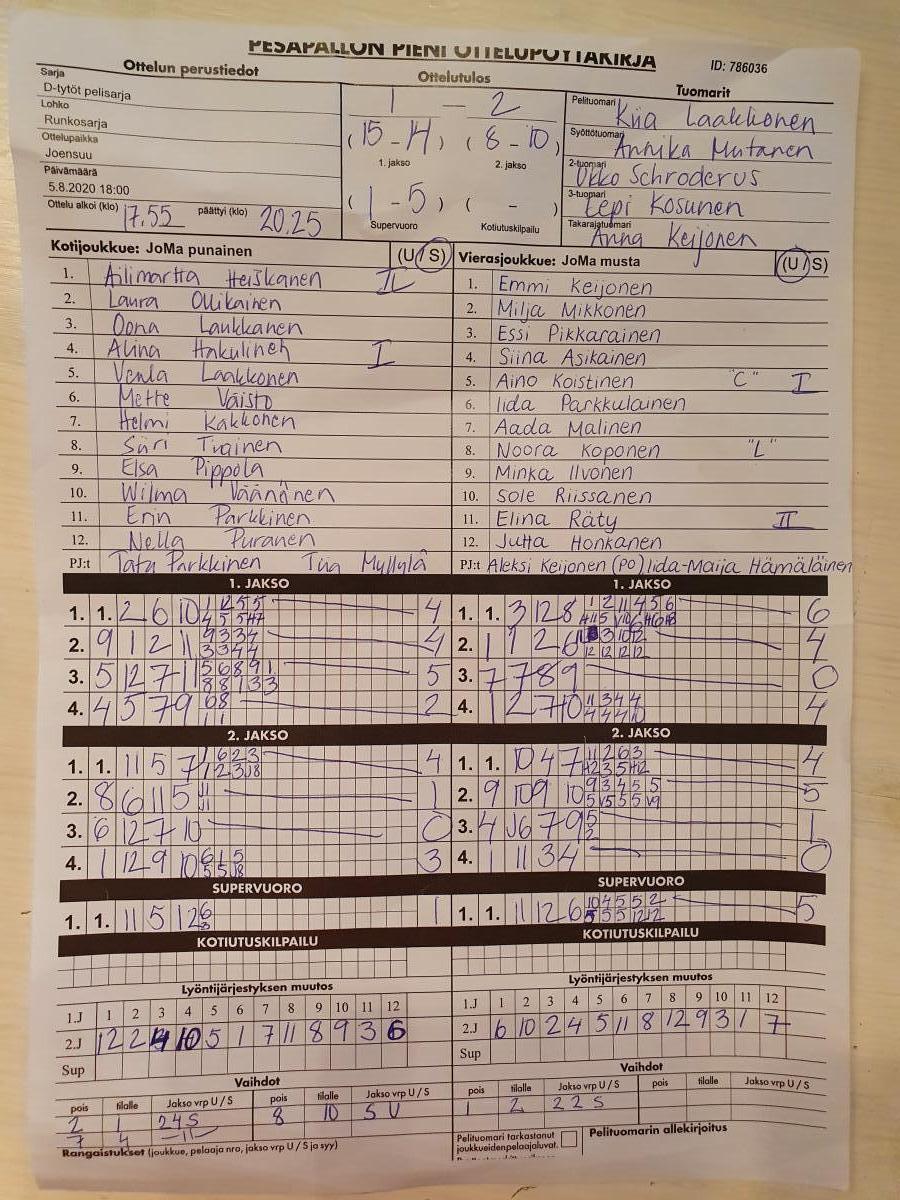 PESÄPALLON PIENI OTTELUPÖYTÄKIRJA
ID: 786036
Ottelun perustiedot
Ottelutulos
Tuomarit
Sarja
D-tytöt pelisarja
Lohko
Runkosarja
Ottelupaikka
Joensuu
Päivämäärä
5.8.2020 18:00
Ottelu alkoi (klo) 17.55 päättyi (klo) 20.25
1 — 2
(15 - 14) (8 - 10)
1. jakso 2. jakso
(1 - 5) ( - )
Supervuoro Kotiutuskilpailu
Pelituomari Kiia Laakkonen
Syöttötuomari Annika Mutanen
2-tuomari Okko Schroderus
3-tuomari Eepi Kosunen
Takarajatuomari Anna Keijonen
Kotijoukkue: JoMa punainen (U / S)
1. Ailimartta Heiskanen II
2. Laura Ollikainen
3. Oona Laukkanen
4. Alina Hakulinen I
5. Venla Laakkonen
6. Mette Väistö
7. Helmi Kakkonen
8. Siiri Tiainen
9. Elsa Pippola
10. Wilma Väänänen
11. Erin Parkkinen
12. Nella Puranen
PJ:t Tatu Parkkinen Tua Myllylä
Vierasjoukkue: JoMa musta (U / S)
1. Emmi Keijonen
2. Milja Mikkonen
3. Essi Pikkarainen
4. Siina Asikainen
5. Aino Koistinen "C" I
6. Iida Parkkulainen
7. Aada Malinen
8. Noora Koponen "L"
9. Minka Ilvonen
10. Sole Riissanen
11. Elina Räty II
12. Jutta Honkanen
PJ:t Aleksi Keijonen (PO) Iida-Maija Hämäläinen
1. JAKSO
1. 1. 2 6 10 4
2. 9 1 2 11 4
3. 5 12 7 11 5
4. 4 5 7 9 2
1. JAKSO
1. 1. 3 12 8 6
2. 1 1 2 6 4
3. 7 7 8 9 0
4. 1 2 7 10 4
2. JAKSO
1. 1. 11 5 7 4
2. 8 6 11 5 1
3. 6 12 7 10 0
4. 1 12 9 10 3
2. JAKSO
1. 1. 10 4 7 4
2. 9 10 9 10 5
3. 4 6 7 9 1
4. 1 11 3 4 0
SUPERVUORO
1. 1. 11 5 12 1
SUPERVUORO
1. 1. 11 12 6 5
KOTIUTUSKILPAILU
KOTIUTUSKILPAILU
Lyöntijärjestyksen muutos
1.J 1 2 3 4 5 6 7 8 9 10 11 12
2.J 12 2 4 10 5 1 7 11 8 9 3 6
Sup
Lyöntijärjestyksen muutos
1.J 1 2 3 4 5 6 7 8 9 10 11 12
2.J 6 10 2 4 5 11 8 12 9 3 1 7
Sup
Vaihdot
pois tilalle Jakso vrp U / S pois tilalle Jakso vrp U / S
2 1 24S 8 10 S U
7 4 —11—
Vaihdot
pois tilalle Jakso vrp U / S pois tilalle Jakso vrp U / S
1 2 2 2 S
Rangaistukset (joukkue, pelaaja nro, jakso vrp U / S ja syy)
Pelituomari tarkastanut
joukkueidenpelaajaluvat.
Pelituomarin allekirjoitus